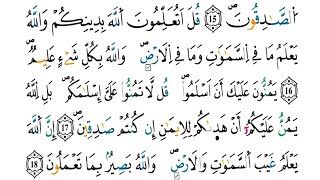 اَ۬لصَّٰدِقُونَۖ ۝١٥ قُلَ اَتُعَلِّمُونَ اَ۬للَّهَ بِدِينِكُمْ وَاللَّهُ
يَعْلَمُ مَا فِے اِ۬لسَّمَٰوَٰتِ وَمَا فِے اِ۬لَارْضِۖ وَاللَّهُ بِكُلِّ شَےْءٍ عَلِيمٌۖ
۝١٦ يَمُنُّونَ عَلَيْكَ أَنَ اَسْلَمُواْۖ قُل لَّا تَمُنُّواْ عَلَيَّ إِسْلَٰمَكُمۖ بَلِ اِ۬للَّهُ
يَمُنُّ عَلَيْكُمُۥٓ أَنْ هَدَىٰكُمْ لِلِايمَٰنِ إِن كُنتُمْ صَٰدِقِينَۖ ۝١٧ إِنَّ اَ۬للَّهَ
يَعْلَمُ غَيْبَ اَ۬لسَّمَٰوَٰتِ وَالَارْضِۖ وَاللَّهُ بَصِيرُۢ بِمَا تَعْمَلُونَۖ ۝١٨